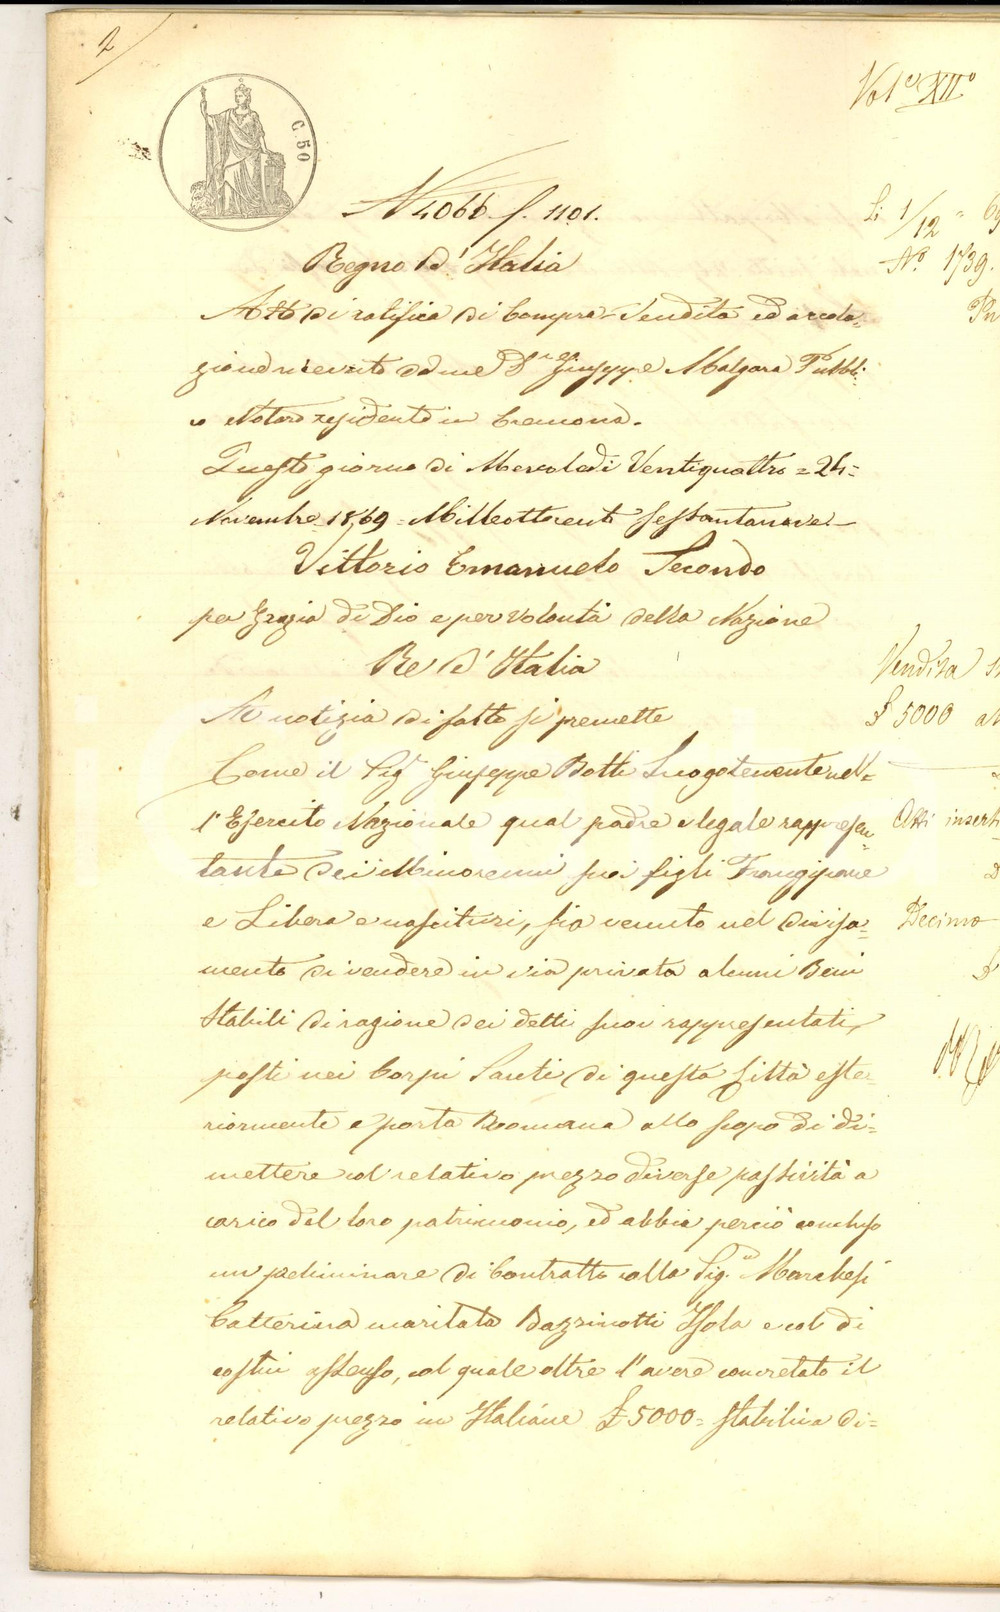 2
Vol.º XIIº
C. 50
N 4066. f. 1101.
Li 1/12
Nº 1739.
Regno d'Italia
Atto di ratifica di Compra-Vendita ed accola-
zione ricevuto da me Dr Giuseppe Malgara Pubbli-
co Notaro residente in Cremona.
Questo giorno di Mercoledì Ventiquattro = 24 =
Novembre 1869 = Milleottocento sessantanove —
Vittorio Emanuele Secondo
per grazia di Dio e per volontà della Nazione
Re d'Italia
Vendita
A notizia di fatto si premette
£ 5000
Come il Sigr Giuseppe Botti Luogotenente nel-
l'Esercito Nazionale qual padre e legale rappresen-
Atti inserti
tante dei Minorenni suoi figli Frangipane
e Libera e nascituri, sia venuto nel divisa-
Decimo
mento di vendere in via privata alcuni Beni
Stabili di ragione dei detti suoi rappresentati,
posti nei Corpi Santi di questa Città este-
riormente a porta Romana allo scopo di di-
mettere col relativo prezzo diverse passività a
carico del loro patrimonio, ed abbia perciò concluso
un preliminare di Contratto colla Sig.ª Marchesi
Catterina maritata Bazzinotti Isola e col di
costui assenso, col quale oltre l'avere concretato il
relativo prezzo in Italiane £ 5000 = stabiliva di-